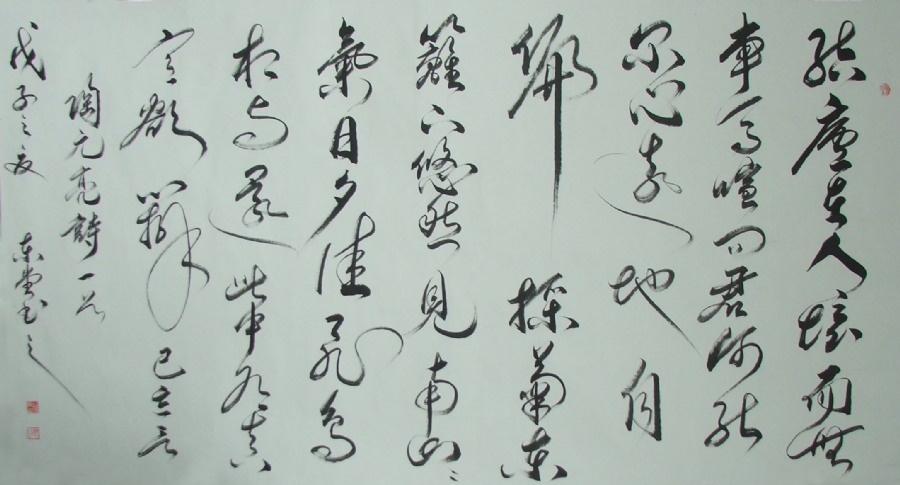 结庐在人境而無
車馬喧问君何能
尔心遠地自
偏採菊東
籬下悠然見南山
氣日夕佳飛鸟
相与還此中有真
意欲辩已忘言
陶元亮诗一首
戊子之夏東堂书之